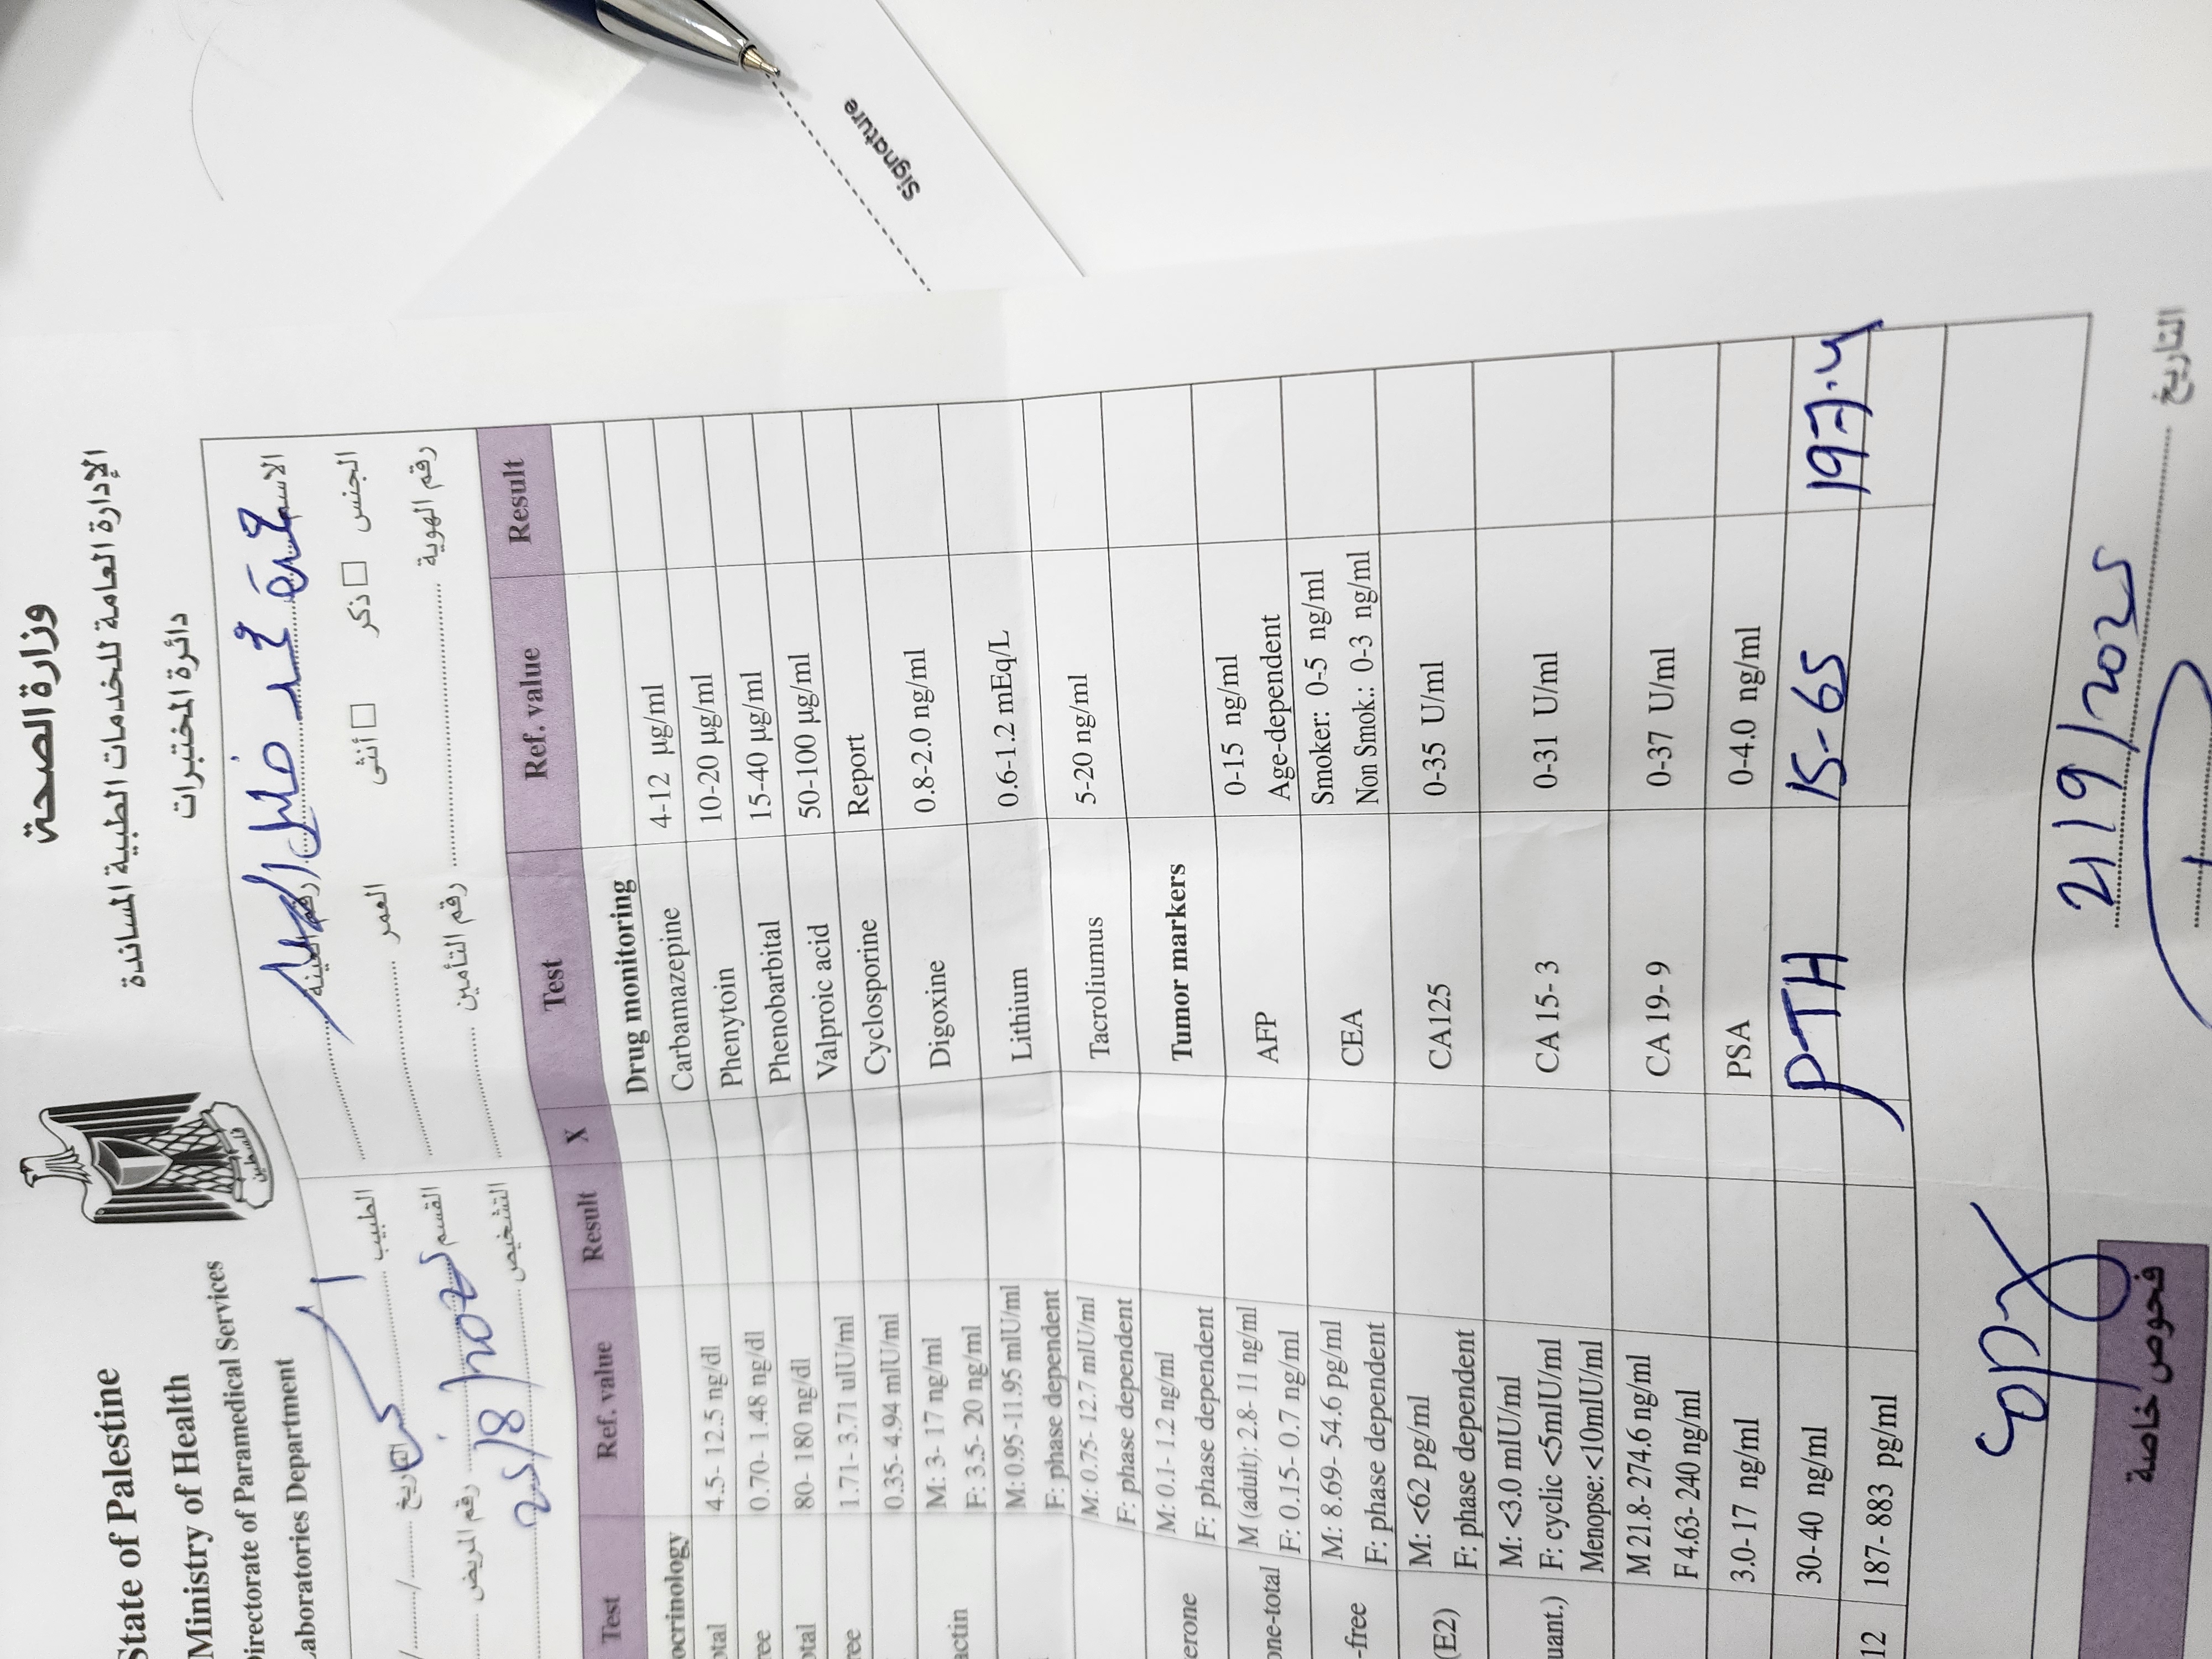 State of Palestine
Ministry of Health
Directorate of Paramedical Services
Laboratories Department
وزارة الصحة
الإدارة العامة للخدمات الطبية المساندة
دائرة المختبرات
فلسطين
الاسم حمزة محمد خليل
رقم العينة
التاريخ
الجنس ذكر أنثى العمر الطبيب
رقم الهوية رقم التأمين القسم رقم المريض
25/8/2025
التشخيص
Test Ref. value Result X Test Ref. value Result
ocrinology Drug monitoring
otal 4.5- 12.5 ng/dl Carbamazepine 4-12 µg/ml
ree 0.70- 1.48 ng/dl Phenytoin 10-20 µg/ml
otal 80- 180 ng/dl Phenobarbital 15-40 µg/ml
ree 1.71- 3.71 uIU/ml Valproic acid 50-100 µg/ml
0.35- 4.94 mIU/ml Cyclosporine Report
actin M: 3- 17 ng/ml Digoxine 0.8-2.0 ng/ml
F: 3.5- 20 ng/ml
M: 0.95-11.95 mIU/ml Lithium 0.6-1.2 mEq/L
F: phase dependent
M: 0.75- 12.7 mIU/ml Tacroliumus 5-20 ng/ml
F: phase dependent
erone M: 0.1- 1.2 ng/ml Tumor markers
F: phase dependent
one-total M (adult): 2.8- 11 ng/ml AFP 0-15 ng/ml
F: 0.15- 0.7 ng/ml Age-dependent
-free M: 8.69- 54.6 pg/ml CEA Smoker: 0-5 ng/ml
F: phase dependent Non Smok.: 0-3 ng/ml
(E2) M: <62 pg/ml CA125 0-35 U/ml
F: phase dependent
uant.) M: <3.0 mIU/ml CA 15- 3 0-31 U/ml
F: cyclic <5mIU/ml
Menopse: <10mIU/ml
M 21.8- 274.6 ng/ml CA 19- 9 0-37 U/ml
F 4.63- 240 ng/ml
3.0- 17 ng/ml PSA 0-4.0 ng/ml
30- 40 ng/ml PTH 15-65 197.4
12 187- 883 pg/ml
copy
فحوص خاصة
21/9/2025
التاريخ
Signature